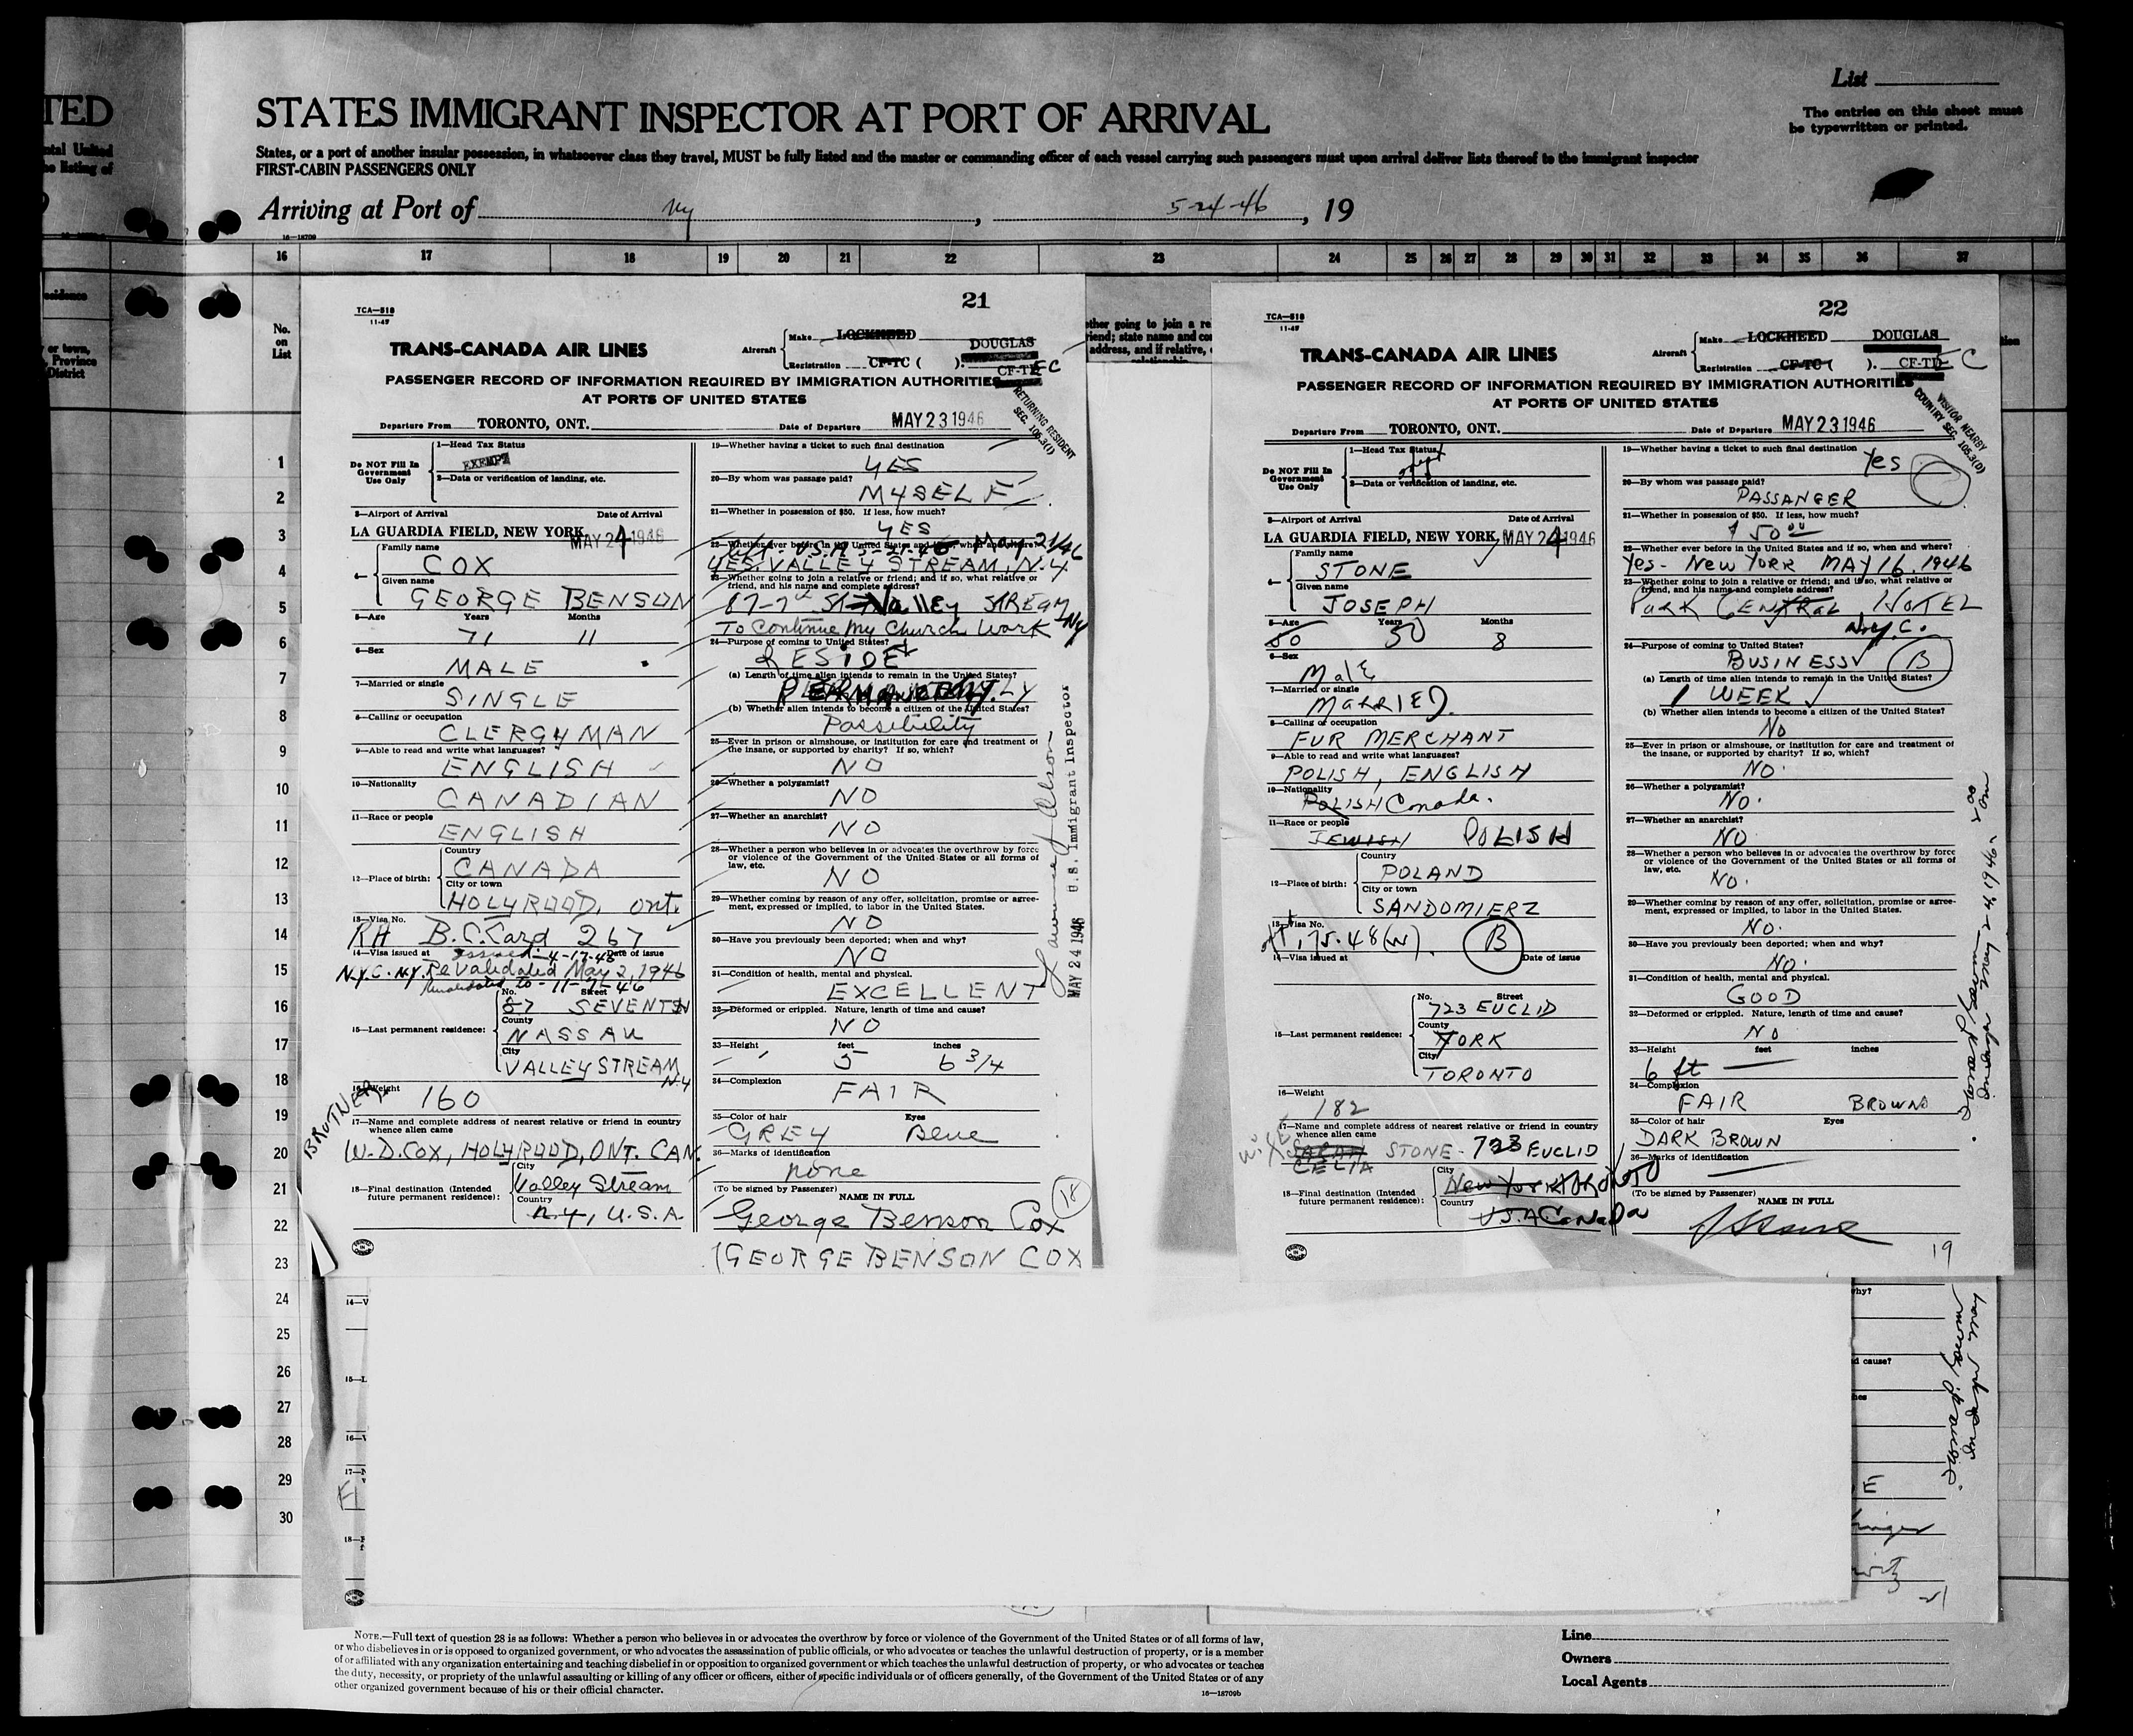 TED
ntal United
he listing of
List
STATES IMMIGRANT INSPECTOR AT PORT OF ARRIVAL
The entries on this sheet must
be typewritten or printed.
States, or a port of another insular possession, in whatsoever class they travel, MUST be fully listed and the master or commanding officer of each vessel carrying such passengers must upon arrival deliver lists thereof to the immigrant inspector
FIRST-CABIN PASSENGERS ONLY
Arriving at Port of NY, 5-24-46, 19
16—18709
16 17 18 19 20 21 22 23 24 25 26 27 28 29 30 31 32 33 34 35 36 37
esidence
or town,
Province
District
No.
on
List
1
2
3
4
5
6
7
8
9
10
11
12
13
14
15
16
17
18
19
20
21
22
23
24
25
26
27
28
29
30
21
TCA—518
11-45
TRANS-CANADA AIR LINES
Aircraft
Make LOCKHEED DOUGLAS
Registration CF-TC ( ). CF-TEC
PASSENGER RECORD OF INFORMATION REQUIRED BY IMMIGRATION AUTHORITIES
AT PORTS OF UNITED STATES
RETURNING RESIDENT
SEC. 105.3(1)
Departure From TORONTO, ONT. Date of Departure MAY 23 1946
Do NOT Fill In
Government
Use Only
1—Head Tax Status
EXEMPT
2—Data or verification of landing, etc.
3—Airport of Arrival Date of Arrival
LA GUARDIA FIELD, NEW YORK MAY 24 1946
4—
Family name
COX
Given name
GEORGE BENSON
5—Age Years Months
71 11
6—Sex
MALE
7—Married or single
SINGLE
8—Calling or occupation
CLERGYMAN
9—Able to read and write what languages?
ENGLISH
10—Nationality
CANADIAN
11—Race or people
ENGLISH
12—Place of birth:
Country
CANADA
City or town
HOLYROOD, ont.
13—Visa No.
RH B.C. Card 267
14—Visa issued at issued 4-17-46 Date of issue
N.Y.C. N.Y. Revalidated May 2, 1946
Revalidated to -11-1-46
15—Last permanent residence:
No. Street
87 SEVENTH
County
NASSAU
City
VALLEY STREAM
N.Y
16—Weight
160
17—Name and complete address of nearest relative or friend in country
whence alien came
BROTHER
W.D. COX, HOLYROOD, ONT. CAN.
18—Final destination (Intended
future permanent residence):
City
Valley Stream
Country
N.Y., U.S.A
19—Whether having a ticket to such final destination
YES
20—By whom was passage paid?
MYSELF
21—Whether in possession of $50. If less, how much?
YES
22—Whether ever before in the United States and if so, when and where?
left U.S.A. 5-21-46 May 21/46
YES. VALLEY STREAM, N.Y
23—Whether going to join a relative or friend; and if so, what relative or
friend, and his name and complete address?
87-7th St Valley STREAM NY
To Continue My Church Work
24—Purpose of coming to United States?
RESIDE
(a) Length of time alien intends to remain in the United States?
PERMANENTLY
(b) Whether alien intends to become a citizen of the United States?
Possibility
25—Ever in prison or almshouse, or institution for care and treatment of
the insane, or supported by charity? If so, which?
NO
26—Whether a polygamist?
NO
27—Whether an anarchist?
NO
28—Whether a person who believes in or advocates the overthrow by force
or violence of the Government of the United States or all forms of
law, etc.
NO
29—Whether coming by reason of any offer, solicitation, promise or agree-
ment, expressed or implied, to labor in the United States.
NO
30—Have you previously been deported; when and why?
NO
31—Condition of health, mental and physical.
EXCELLENT
32—Deformed or crippled. Nature, length of time and cause?
NO
33—Height feet inches
5 6 3/4
34—Complexion
FAIR
35—Color of hair Eyes
GREY Blue
36—Marks of identification
none
(To be signed by Passenger)
NAME IN FULL
18
George Benson Cox
(GEORGE BENSON COX
MAY 24 1946 U.S. Immigrant Inspector
ther going to join a re
riend; state name and co
address, and if relative,
relationship
22
TCA—518
11-45
TRANS-CANADA AIR LINES
Aircraft
Make LOCKHEED DOUGLAS
Registration CF-TC ( ). CF-TDEC
PASSENGER RECORD OF INFORMATION REQUIRED BY IMMIGRATION AUTHORITIES
AT PORTS OF UNITED STATES
VISITOR NEARBY
COUNTRY SEC. 105.3(0)
Departure From TORONTO, ONT. Date of Departure MAY 23 1946
Do NOT Fill In
Government
Use Only
1—Head Tax Status
2—Data or verification of landing, etc.
3—Airport of Arrival Date of Arrival
LA GUARDIA FIELD, NEW YORK, MAY 24 1946
4—
Family name
STONE
Given name
JOSEPH
5—Age Years Months
50 50 8
6—Sex
Male
7—Married or single
MARRIED.
8—Calling or occupation
FUR MERCHANT
9—Able to read and write what languages?
POLISH, ENGLISH
10—Nationality
POLISH Canada.
11—Race or people
JEWISH POLISH
12—Place of birth:
Country
POLAND
City or town
SANDOMIERZ
13—Visa No.
175.48(w). B
14—Visa issued at Date of issue
15—Last permanent residence:
No. Street
723 EUCLID
County
YORK
City
TORONTO
16—Weight
182
17—Name and complete address of nearest relative or friend in country
whence alien came
wife SARAH STONE - 723 EUCLID
CELIA
18—Final destination (Intended
future permanent residence):
City
New York TORONTO
Country
U.S.A Canada
19—Whether having a ticket to such final destination
Yes
20—By whom was passage paid?
PASSANGER
21—Whether in possession of $50. If less, how much?
$ 50.00
22—Whether ever before in the United States and if so, when and where?
Yes - New York MAY 16. 1946
23—Whether going to join a relative or friend; and if so, what relative or
friend, and his name and complete address?
PARK CENTRAL HOTEL
N.Y.C.
24—Purpose of coming to United States?
BUSINESS B
(a) Length of time alien intends to remain in the United States?
1 WEEK
(b) Whether alien intends to become a citizen of the United States?
No
25—Ever in prison or almshouse, or institution for care and treatment of
the insane, or supported by charity? If so, which?
NO.
26—Whether a polygamist?
NO.
27—Whether an anarchist?
NO
28—Whether a person who believes in or advocates the overthrow by force
or violence of the Government of the United States or all forms of
law, etc.
NO.
29—Whether coming by reason of any offer, solicitation, promise or agree-
ment, expressed or implied, to labor in the United States.
NO.
30—Have you previously been deported; when and why?
NO.
31—Condition of health, mental and physical.
GOOD
32—Deformed or crippled. Nature, length of time and cause?
NO
33—Height feet inches
6 ft —
34—Complexion
FAIR BROWN
35—Color of hair Eyes
DARK BROWN
36—Marks of identification
(To be signed by Passenger)
NAME IN FULL
J Stone
19
Inspector May 24, 1946
14—V
15—L
16—
17—
18—
why?
d cause?
hes
E
NOTE.—Full text of question 28 is as follows: Whether a person who believes in or advocates the overthrow by force or violence of the Government of the United States or of all forms of law,
or who disbelieves in or is opposed to organized government, or who advocates the assassination of public officials, or who advocates or teaches the unlawful destruction of property, or is a member
of or affiliated with any organization entertaining and teaching disbelief in or opposition to organized government or which teaches the unlawful destruction of property, or who advocates or teaches
the duty, necessity, or propriety of the unlawful assaulting or killing of any officer or officers, either of specific individuals or of officers generally, of the Government of the United States or of any
other organized government because of his or their official character.
16—18709b
Line
Owners
Local Agents